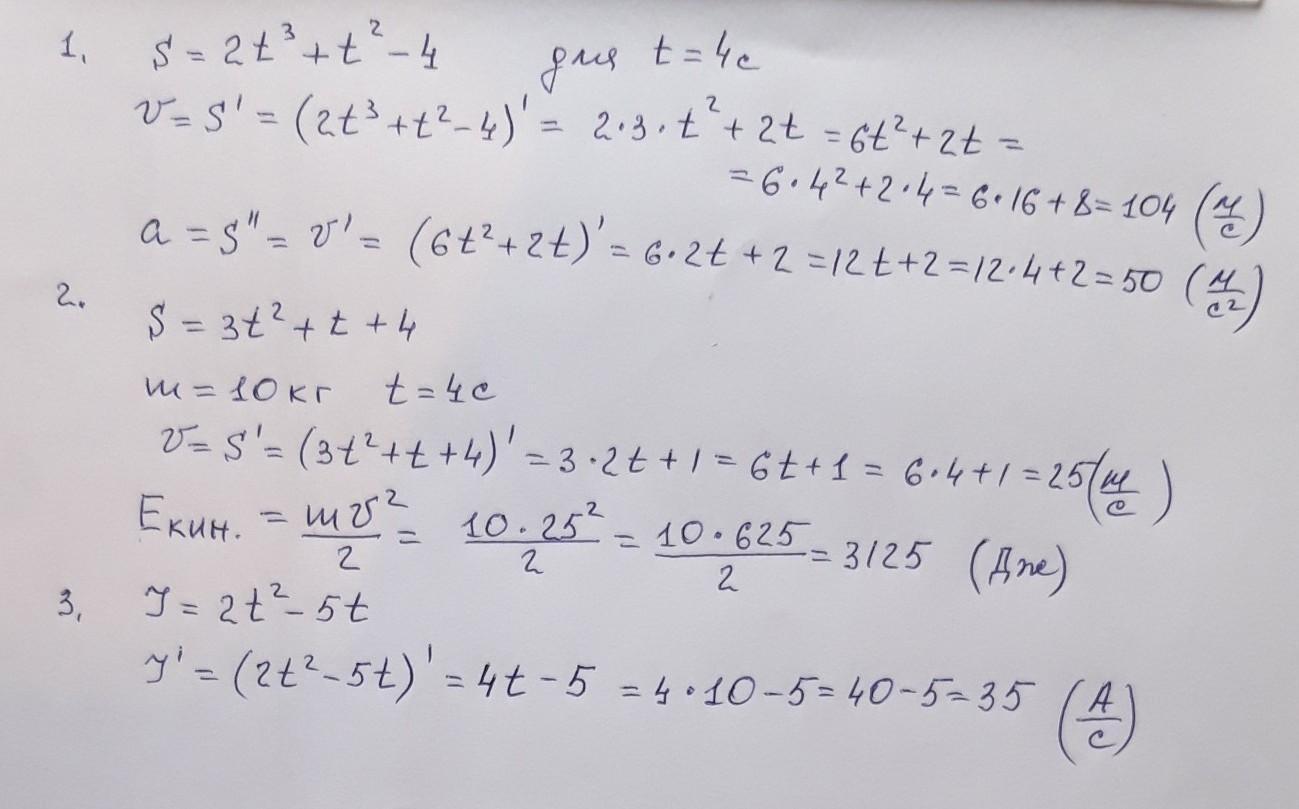 1. S = 2t³ + t² - 4 для t = 4с
v = S' = (2t³ + t² - 4)' = 2·3·t² + 2t = 6t² + 2t =
= 6·4² + 2·4 = 6·16 + 8 = 104 (м/с)
a = S'' = v' = (6t² + 2t)' = 6·2t + 2 = 12t + 2 = 12·4 + 2 = 50 (м/с²)
2.
S = 3t² + t + 4
m = 10 кг t = 4с
v = S' = (3t² + t + 4)' = 3·2t + 1 = 6t + 1 = 6·4 + 1 = 25 (м/с)
Eкин. = mv²/2 = 10·25²/2 = 10·625/2 = 3125 (Дж)
3. J = 2t² - 5t
J' = (2t² - 5t)' = 4t - 5 = 4·10 - 5 = 40 - 5 = 35 (А/с)